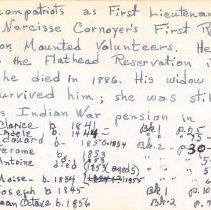 compatriots as First Lieutenant
Narcisse Cornoyer's First R
on Mounted Volunteers. He
the Flathead Reservation i
he died in 1886. His widow
survived him; she was still
s Indian War pension in
b. 1841 Bk-1 p.5
Adele b. 1844 " p.75
douard b. 1850-1854 Bk.2 p.30
erome b.
Antoine b. d. (1855 aged 5)
oise- b. 1855
oseph b. 1845 Bk.1
ean Octave b. 1856 Bk.2